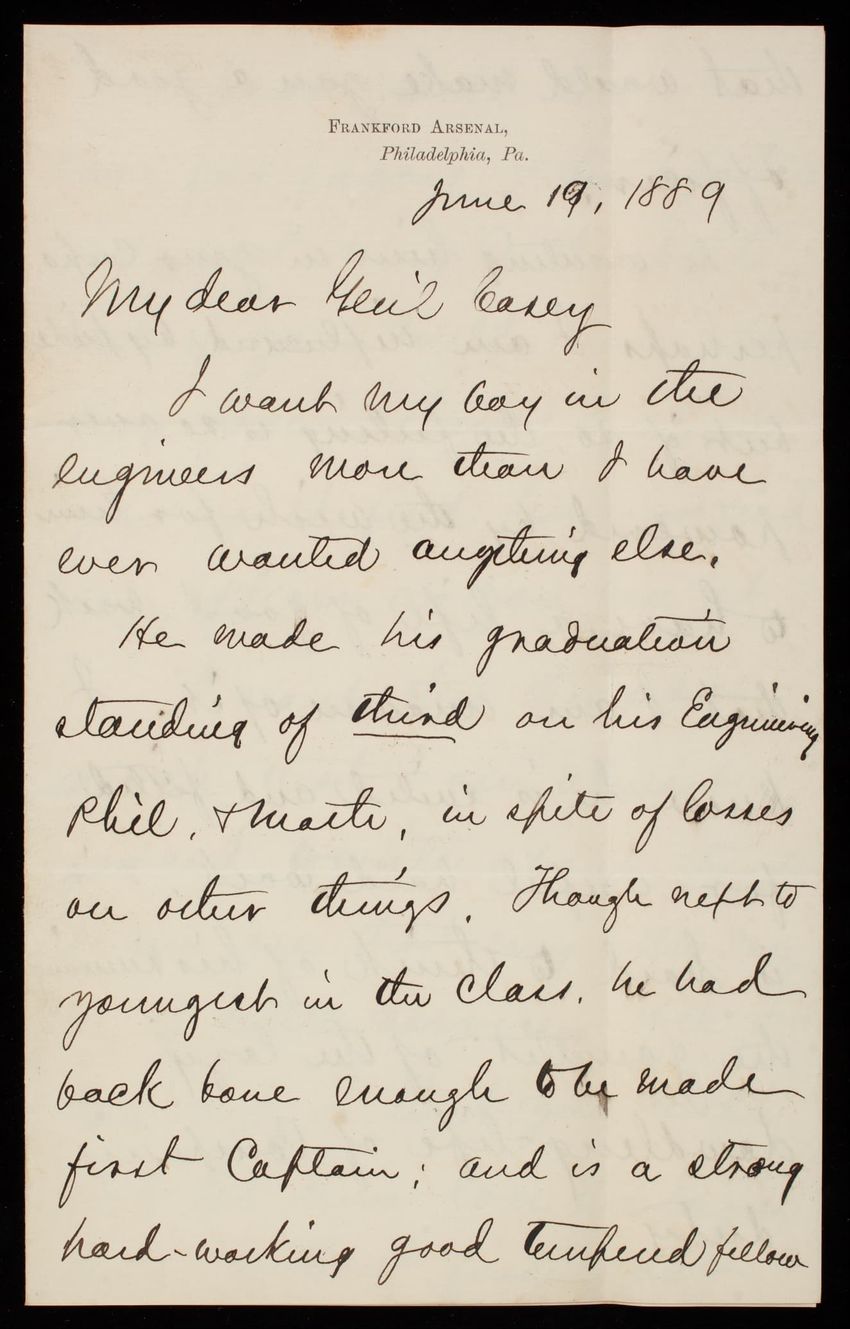 Frankford Arsenal,
Philadelphia, Pa.
June 19, 1889
My dear Genl Casey
I want my boy in the
engineers more than I have
ever wanted anything else.
He made his graduation
standing of third on his Engineering
Phil, & Math, in spite of losses
on other things. Though next to
youngest in the class. he had
back bone enough to be made
first Captain; and is a strong
hard-working good tempered fellow